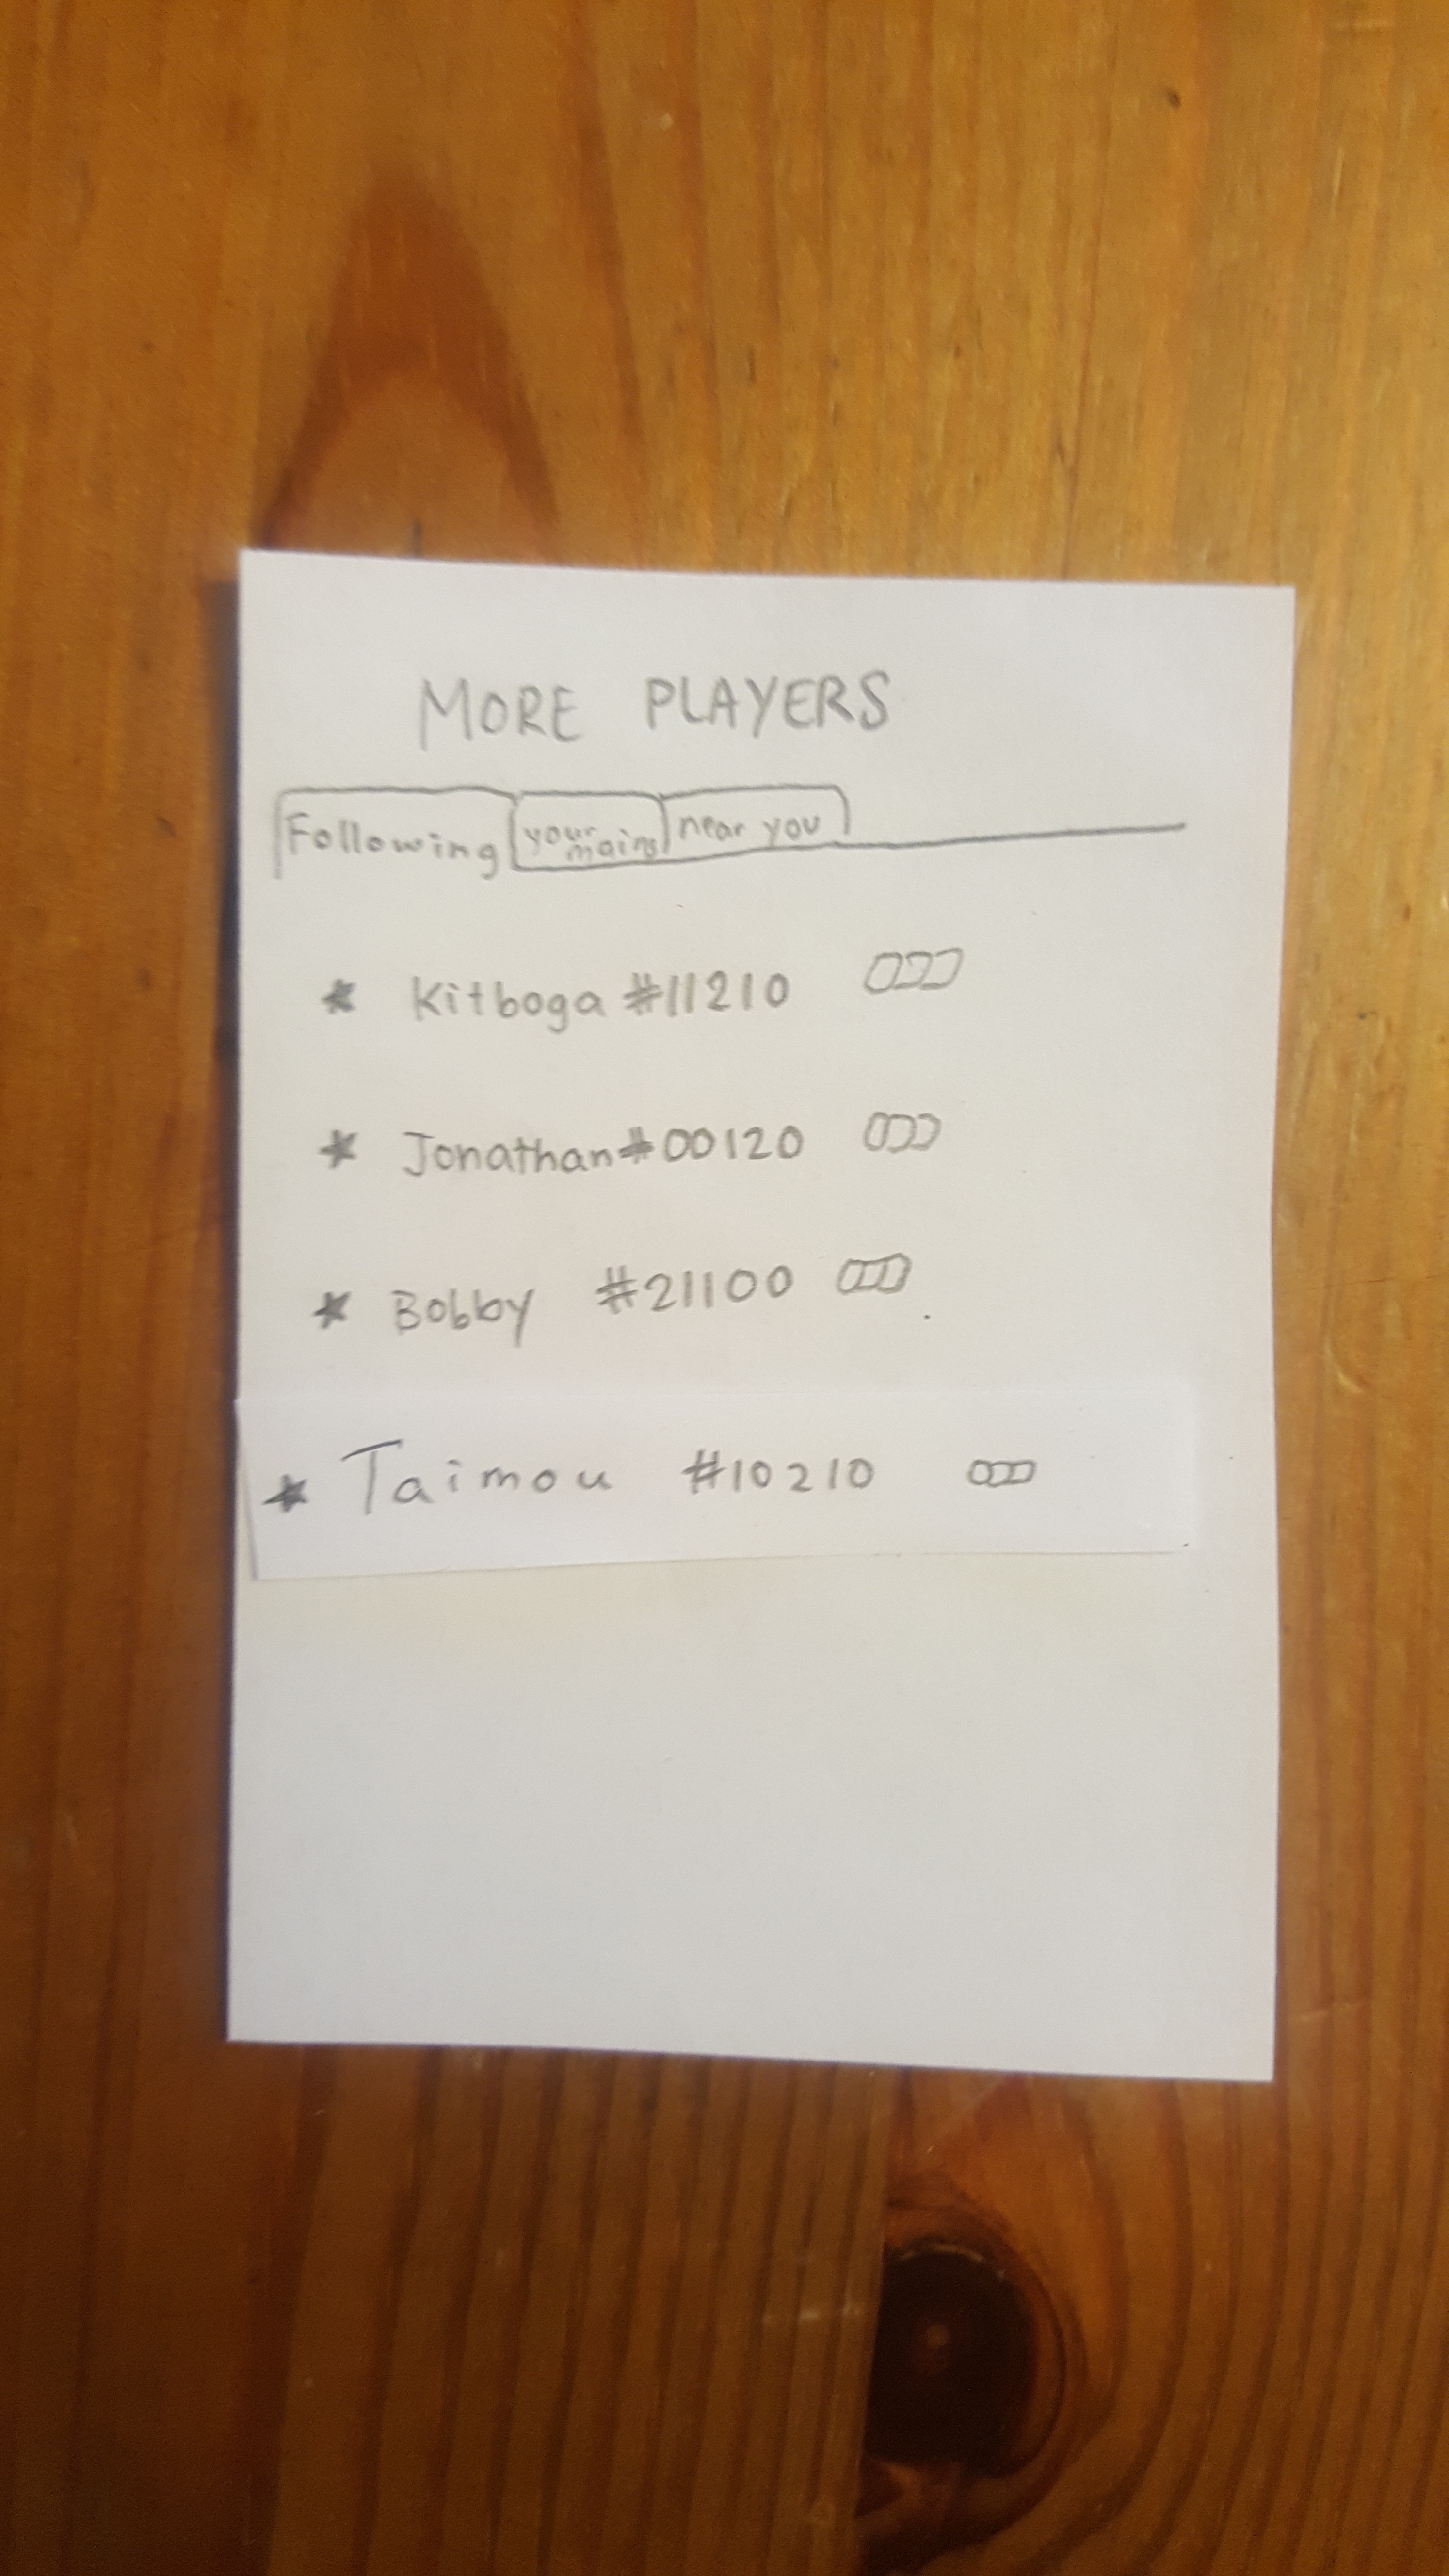 MORE PLAYERS
Following your mains near you
* Kitboga #11210
* Jonathan #00120
* Bobby #21100
* Taimou #10210